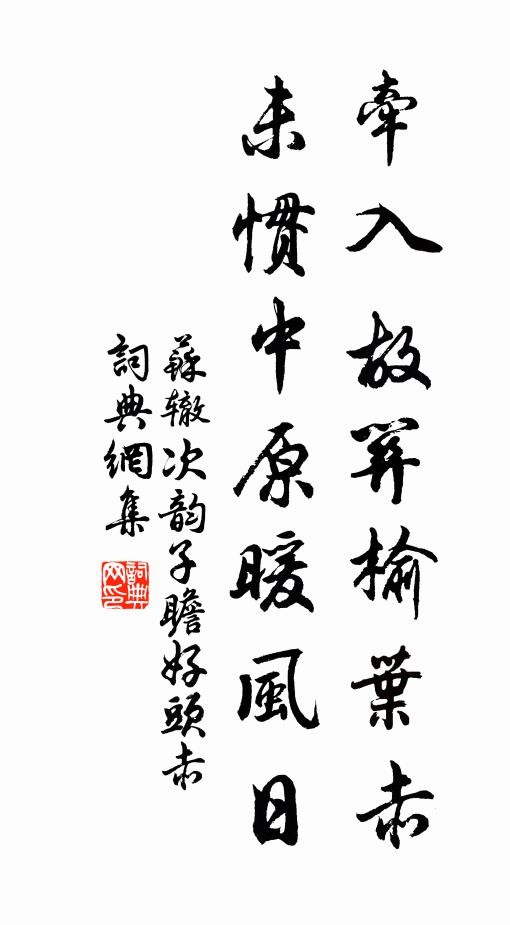 牽入故關榆葉赤
未慣中原暖風日
蘇轍次韵子瞻好頭赤
詞典網集
詞典网印